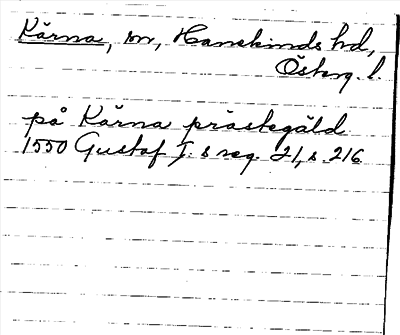 Kärna, sn, Hanekinds hd,
Österg. l.
på Kärna prästegäld
1550 Gustaf I: s reg. 21, s. 216